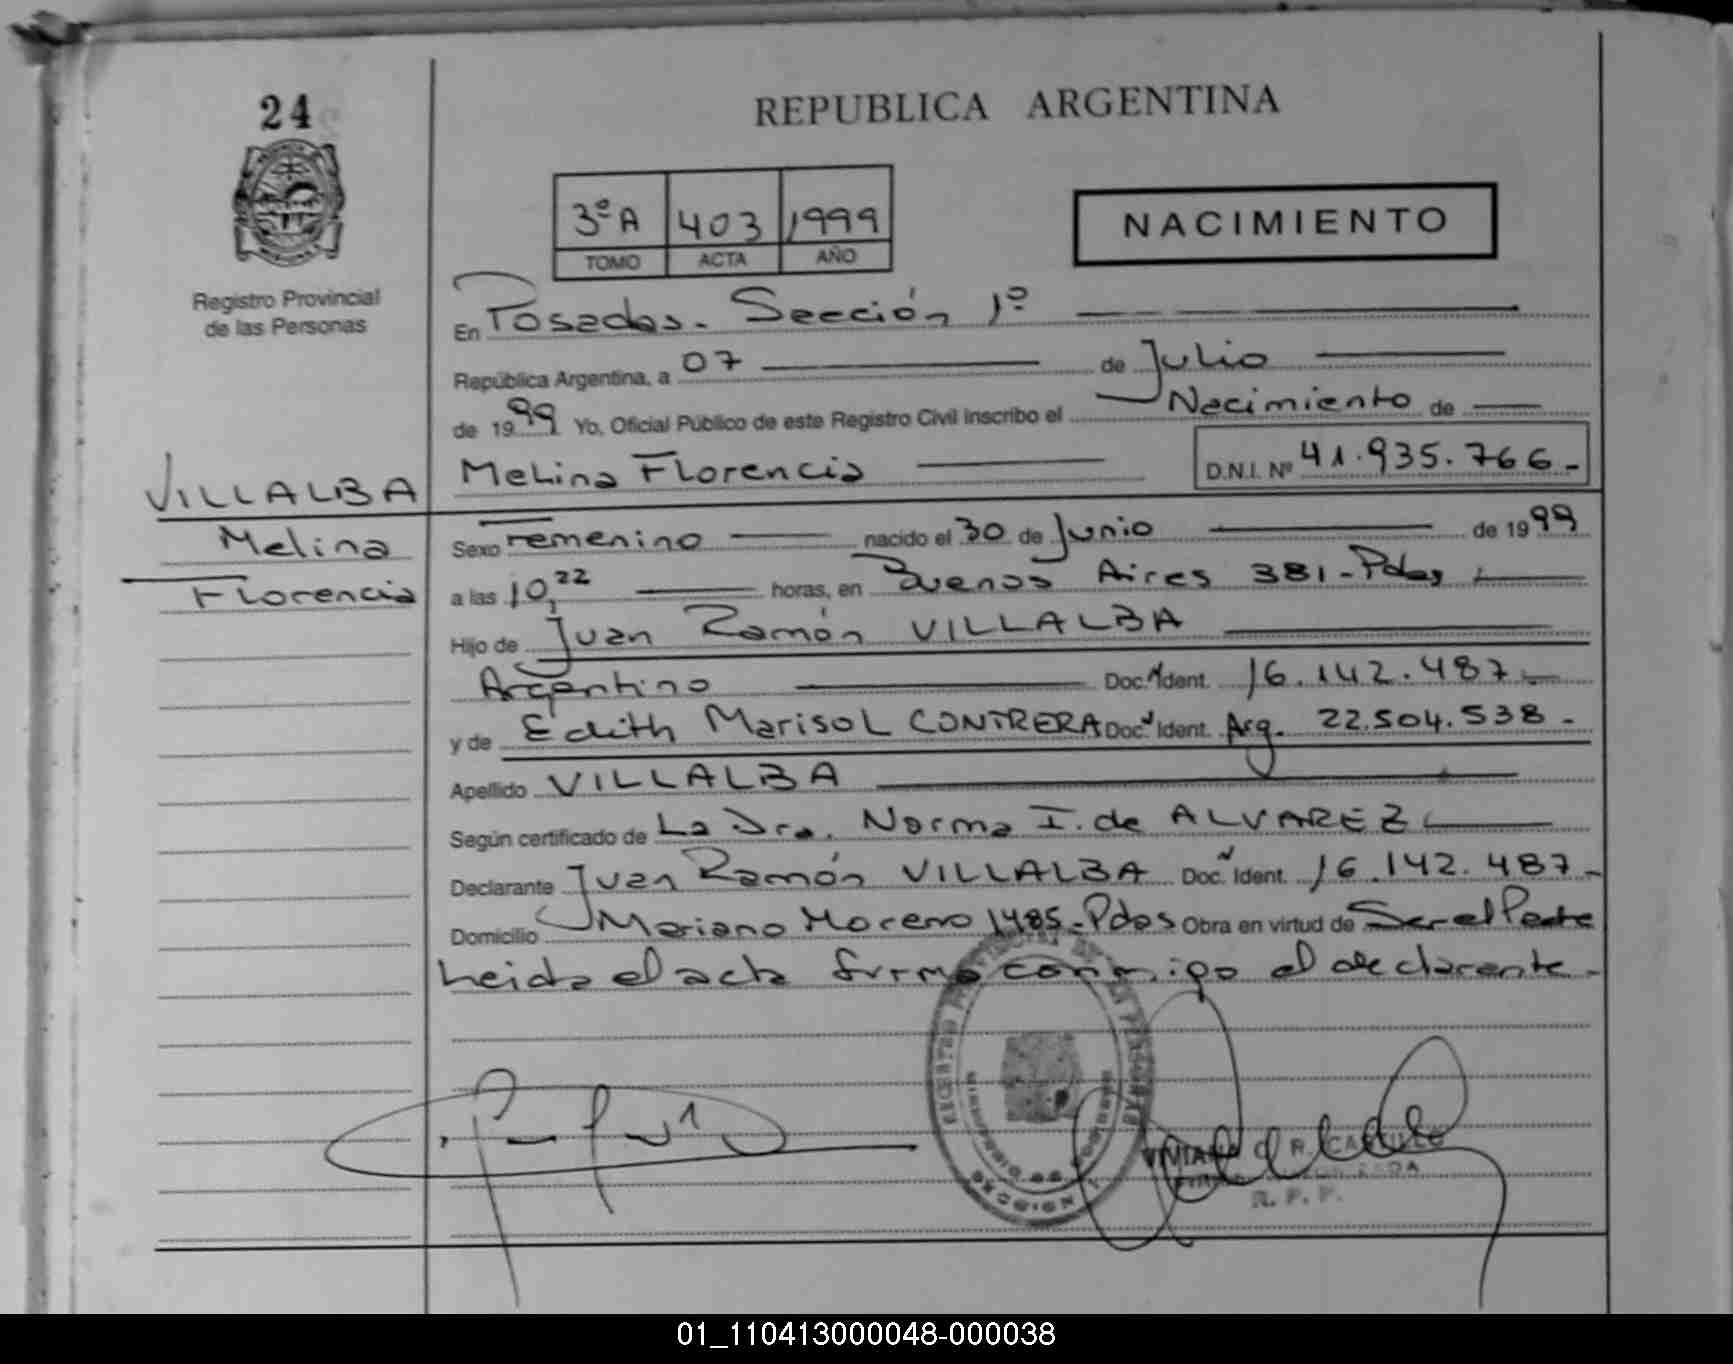 24
REPUBLICA ARGENTINA
3ºA 403 1999
TOMO ACTA AÑO
NACIMIENTO
Registro Provincial
de las Personas
En Posadas. Sección 1º
República Argentina, a 07 de Julio
de 1999 Yo, Oficial Público de este Registro Civil Inscribo el Nacimiento de
Melina Florencia D.N.I. Nº 41.935.766.-
VILLALBA
Melina
Florencia
Sexo Femenino nacido el 30 de Junio de 1999
a las 10,22 horas, en Buenos Aires 381-Pdas
Hijo de Juan Ramón VILLALBA
Argentino Doc. Ident. 16.142.487
y de Edith Marisol CONTRERA Doc. Ident. Arg. 22.504.538.-
Apellido VILLALBA
Según certificado de La Dra. Norma I. de ALVAREZ
Declarante Juan Ramón VILLALBA Doc. Ident. 16.142.487.-
Domicilio Mariano Moreno 1485.-Pdas Obra en virtud de Ser el Padre
Leida el acta firma conmigo el declarante.-
REGISTRO PROVINCIAL DE LAS PERSONAS
SECCION 1
R. CASTILLO
R. P. P.
01_110413000048-000038